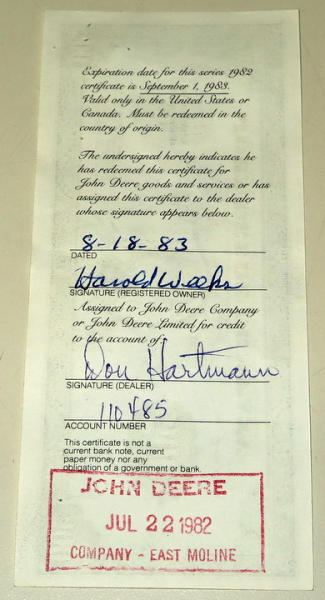 Expiration date for this series 1982
certificate is September 1, 1983.
Valid only in the United States or
Canada. Must be redeemed in the
country of origin.
The undersigned hereby indicates he
has redeemed this certificate for
John Deere goods and services or has
assigned this certificate to the dealer
whose signature appears below.
8-18-83
DATED
Harold Weeks
SIGNATURE (REGISTERED OWNER)
Assigned to John Deere Company
or John Deere Limited for credit
to the account of:
Don Hartmann
SIGNATURE (DEALER)
110485
ACCOUNT NUMBER
This certificate is not a
current bank note, current
paper money nor any
obligation of a government or bank.
JOHN DEERE
JUL 22 1982
COMPANY - EAST MOLINE